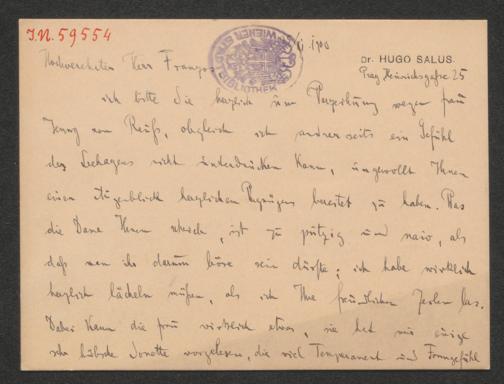 J.N. 59554
WIENER STADT BIBLIOTHEK
1900
Dr. HUGO SALUS.
Prag Heinrichsgasse 25
Hochverehrter Herr Franzos,
ich bitte Sie herzlich um Verzeihung wegen Frau
Jenny von Reuß, obgleich ich andrerseits ein Gefühl
des Behagens nicht unterdrücken kann, ungewollt Ihnen
einen Augenblick herzlichen Vergnügens bereitet zu haben. Was
die Dame Ihnen schrieb, ist zu putzig und naiv, als
daß man ihr darum böse sein dürfte; ich habe wirklich
herzlich lächeln müßen, als ich Ihre freundlichen Zeilen las.
Dabei kann die Frau wirklich etwas, sie hat mir einige
sehr hübsche Sonette vorgelesen, die viel Temperament und Formgefühl